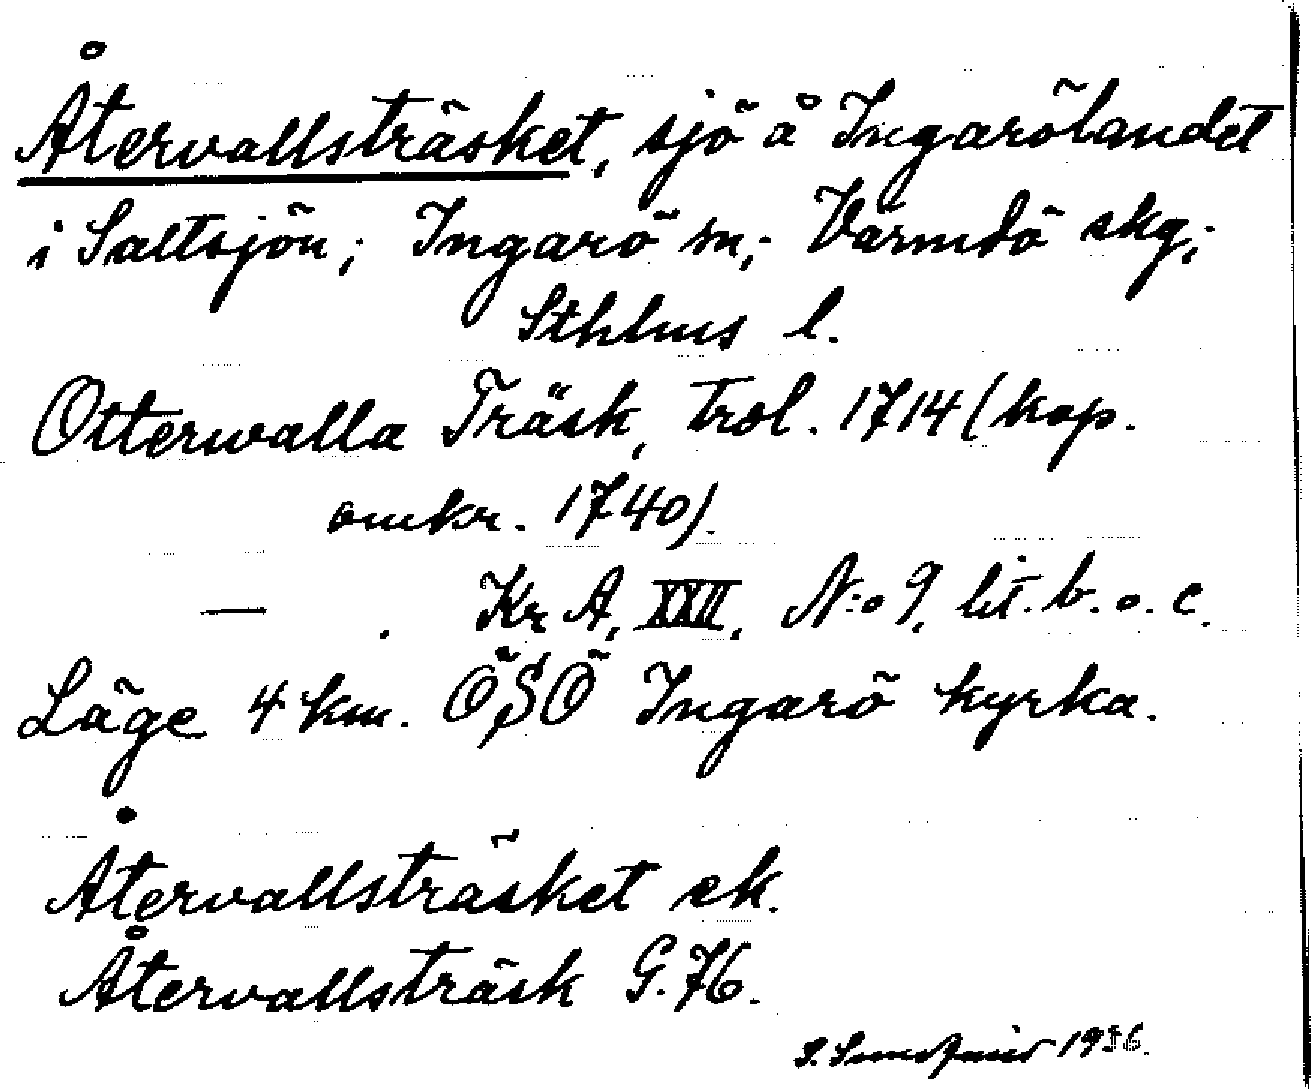 Återvallsträsket, sjö å Ingarölandet
i Saltsjön; Ingarö sn; Värmdö skg;
Sthlms l.
Otterwalla Träsk, trol. 1714 (kop.
omkr. 1740).
— . Kr A, XXII, N:o 9, lit. b. o. c.
Läge 4 km. ÖSÖ Ingarö kyrka.
Återvallsträsket ek.
Återvallsträsk G.76.
1936.